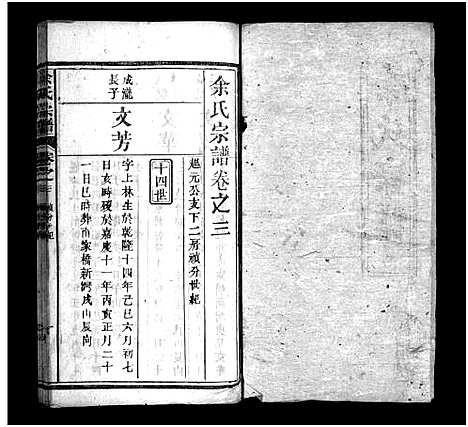 余氏宗譜卷之三
起元公支下二房禎分世紀
十四世
成瀧長子
文芳
字上林生於乾隆十四年己巳六月初七
日亥時歿於嘉慶十一年丙寅正月二十
一日巳時葬
家橋新灣戌山辰向
余氏宗譜
卷之三